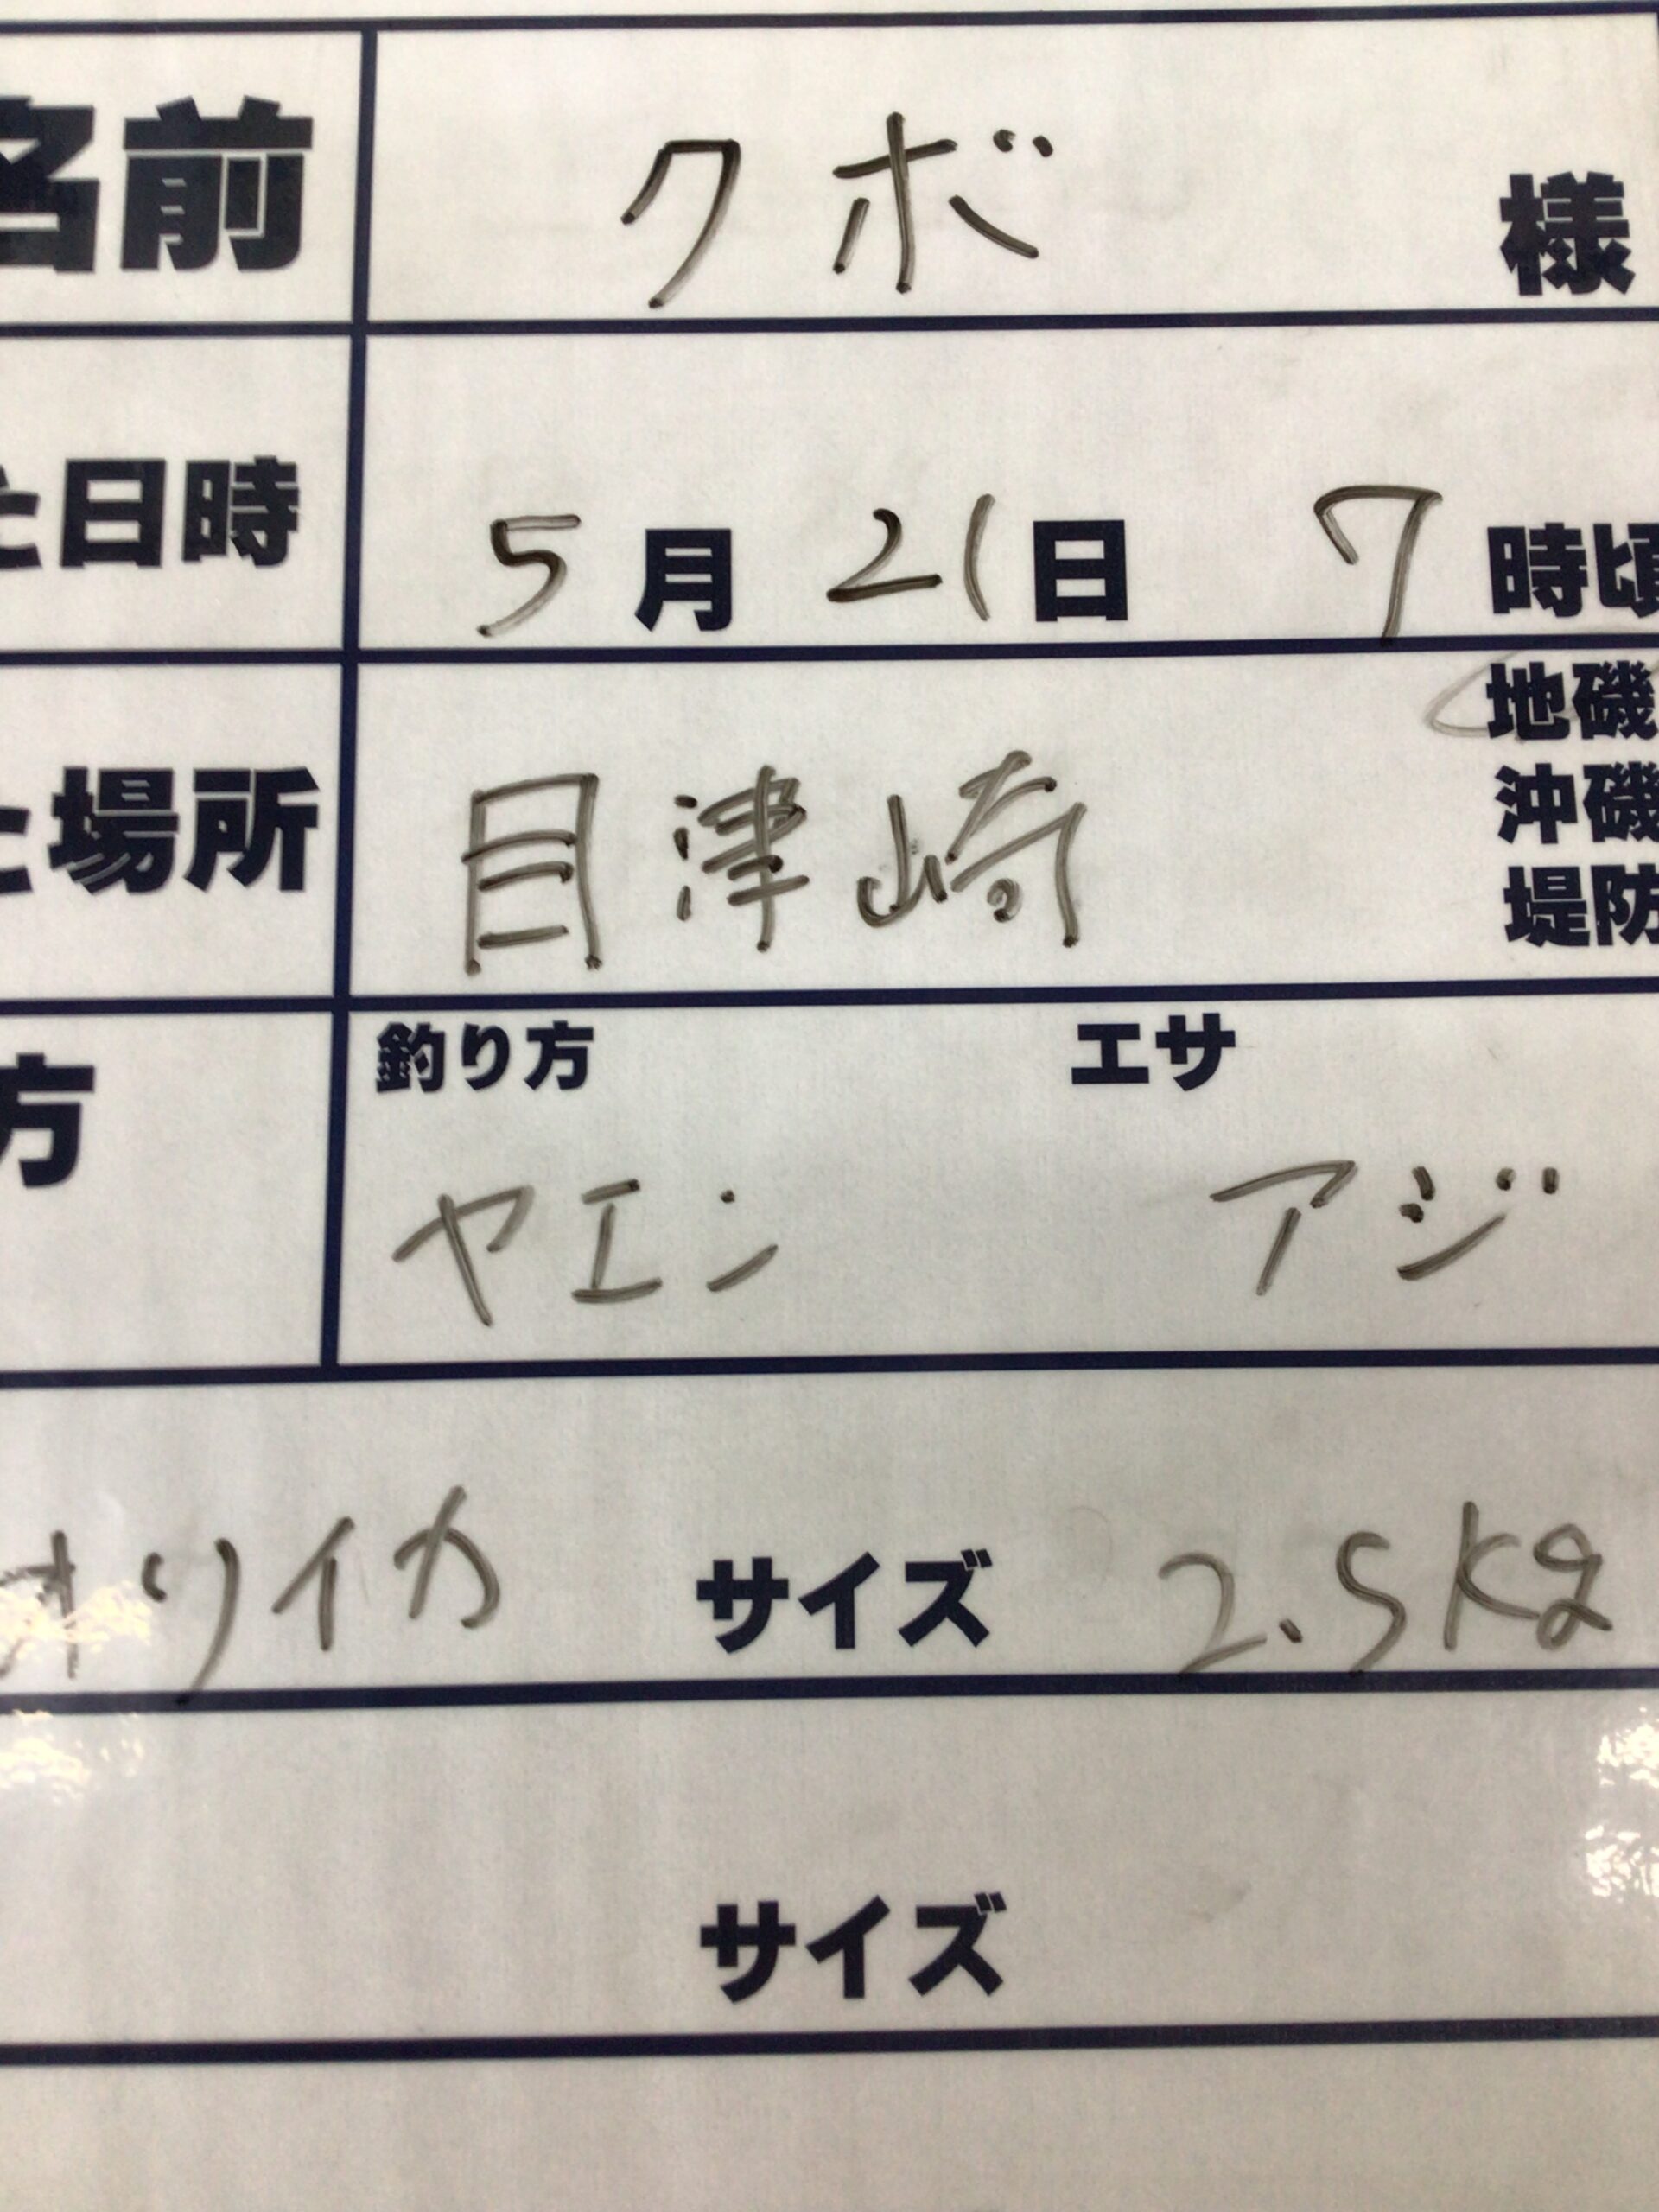 名前 クボ 様
た日時 5月21日 7時頃
た場所 目津崎 地磯
沖磯
堤防
方 釣り方 エサ
ヤエン アジ
オリイカ サイズ 2.5kg
サイズ